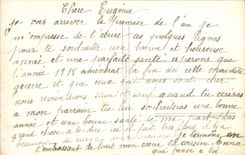 Chère Eugénie
je vois arriver le Premier de l'an je
m'empresse de t'écrire ces quelques lignes
pour te souhaiter une bonne et heureuse
année et une parfaite santé espérons que
l'année 1918 amènerat la fin de cette maudite
guerre et que ceux qui nous sont cher
nous reviendront sain et sauf quand tu écriras
à mon parrain tu lui souhaiteras une bonne
année et une bonne santé de ma part plus
grand chose a te dire
je termine en
t'embrassant de tout mon cœur ta cousine
qui pense a toi